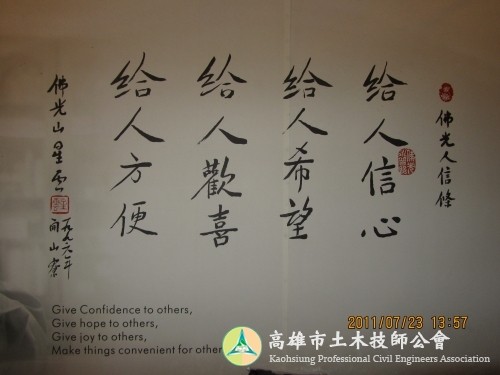 佛光人信條
給人信心
給人希望
給人歡喜
給人方便
佛光山星雲
一九九六年
Give Confidence to others,
Give hope to others,
Give joy to others,
Make things convenient for other
2011/07/23 13:57
高雄市土木技師公會
Kaohsiung Professional Civil Engineers Association